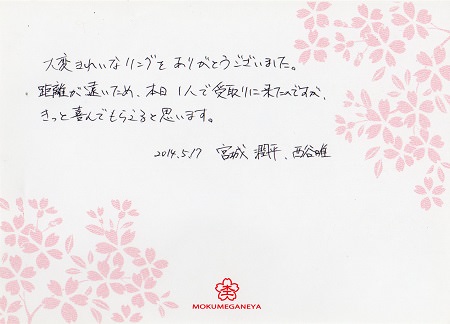 大変きれいなリングをありがとうございました。
距離が遠いため、本日1人で受取りに来たんですが、
きっと喜んでもらえると思います。
2014.5.17 宮城 潤平、西谷 唯
MOKUMEGANEYA